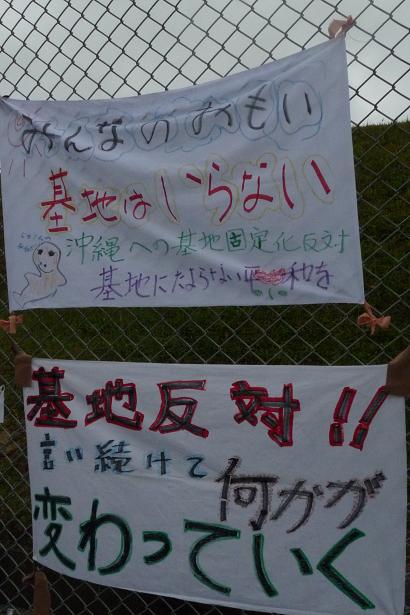 みんなのおもい
基地はいらない
沖縄への基地固定化反対
基地にたよらない平和を
基地反対!!
言い続けて
何かが
変わっていく